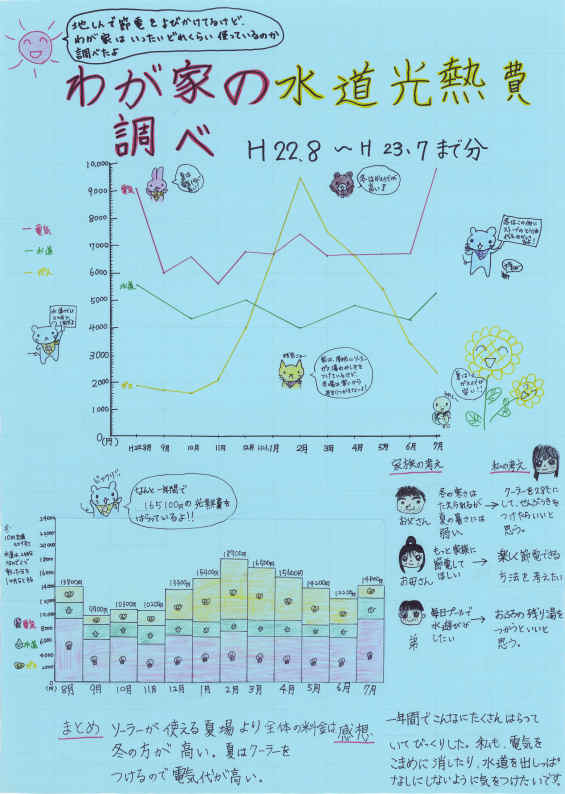 地しんで節電をよびかけてるけど、
わが家はいったいどれくらい使っているのか
調べたよ
わが家の水道光熱費
調べ
H22.8 〜H 23.7 まで分
10,000
9000
8000
7000
6000
5000
4000
3000
2000
1000
0(円)
電気
水道
ガス
電気
水道
ガス
冬はガス代が
高い!
H22.8月 9月 10月 11月 12月 H23.1月 2月 3月 4月 5月 6月 7月
なんと一年間で
165100円の光熱費を
はらっているよ!!
家族の考え
私の考え
お父さん
冬の寒さは
たえられるが
夏の暑さには
弱い
→
クーラーを28℃に
して、せんぷうきを
つけたらいいと
思う。
お母さん
もっと家族に
節電して
ほしい
→
楽しく節電できる
方法を考えたい
弟
毎日プールで
水遊びが
したい
→
おふろの残り湯を
つかうといいと
思う。
電気
水道
ガス
(円) 8月 9月 10月 11月 12月 1月 2月 3月 4月 5月 6月 7月
まとめ
ソーラーが使える夏場より全体の料金は
冬の方が高い。夏はクーラーを
つけるので電気代が高い。
感想
一年間でこんなにたくさんはらって
いてびっくりした。私も、電気を
こまめに消したり、水道を出しっぱ
なしにしないように気をつけたいです。